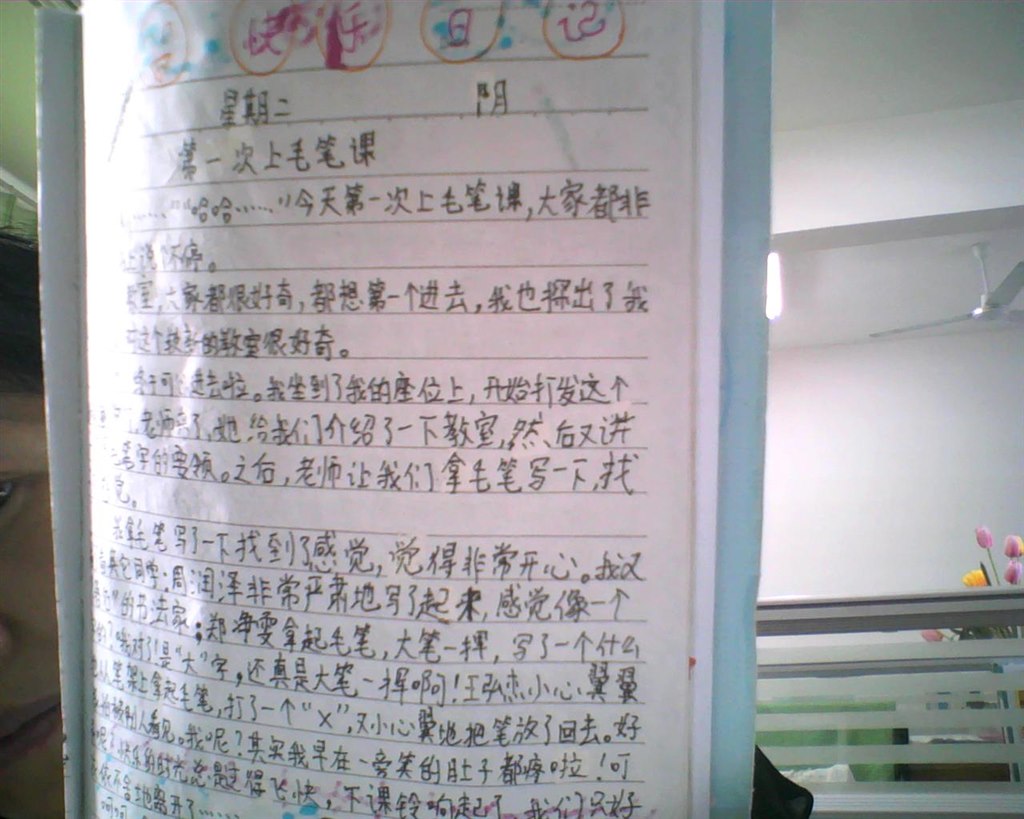 快乐日记
星期二 阴
第一次上毛笔课
哈哈……”今天第一次上毛笔课，大家都非
上说个不停。
教室，大家都很好奇，都想第一个进去，我也探出了我
这个教室很好奇。
终于可以进去啦。我坐到了我的座位上，开始打发这个
老师 了，她给我们介绍了一下教室，然后又讲
笔字的要领。之后，老师让我们拿毛笔写一下，找
觉。
我拿毛笔写了一下找到了感觉，觉得非常开心。我又
其它同学：周润泽非常严肃地写了起来，感觉像一个
”的书法家；郑净雯拿起毛笔，大笔一挥，写了一个什么
哦对了！是“大”字，还真是大笔一挥啊！王弘杰小心翼翼
从笔架上拿起毛笔，打了一个“×”，又小心翼地把笔放了回去。好
被别人看见。我呢？其实我早在一旁笑的肚子都疼啦！可
快乐的时光总是过得飞快，下课铃响起了，我们只好
依不舍地离开了……
呵呵